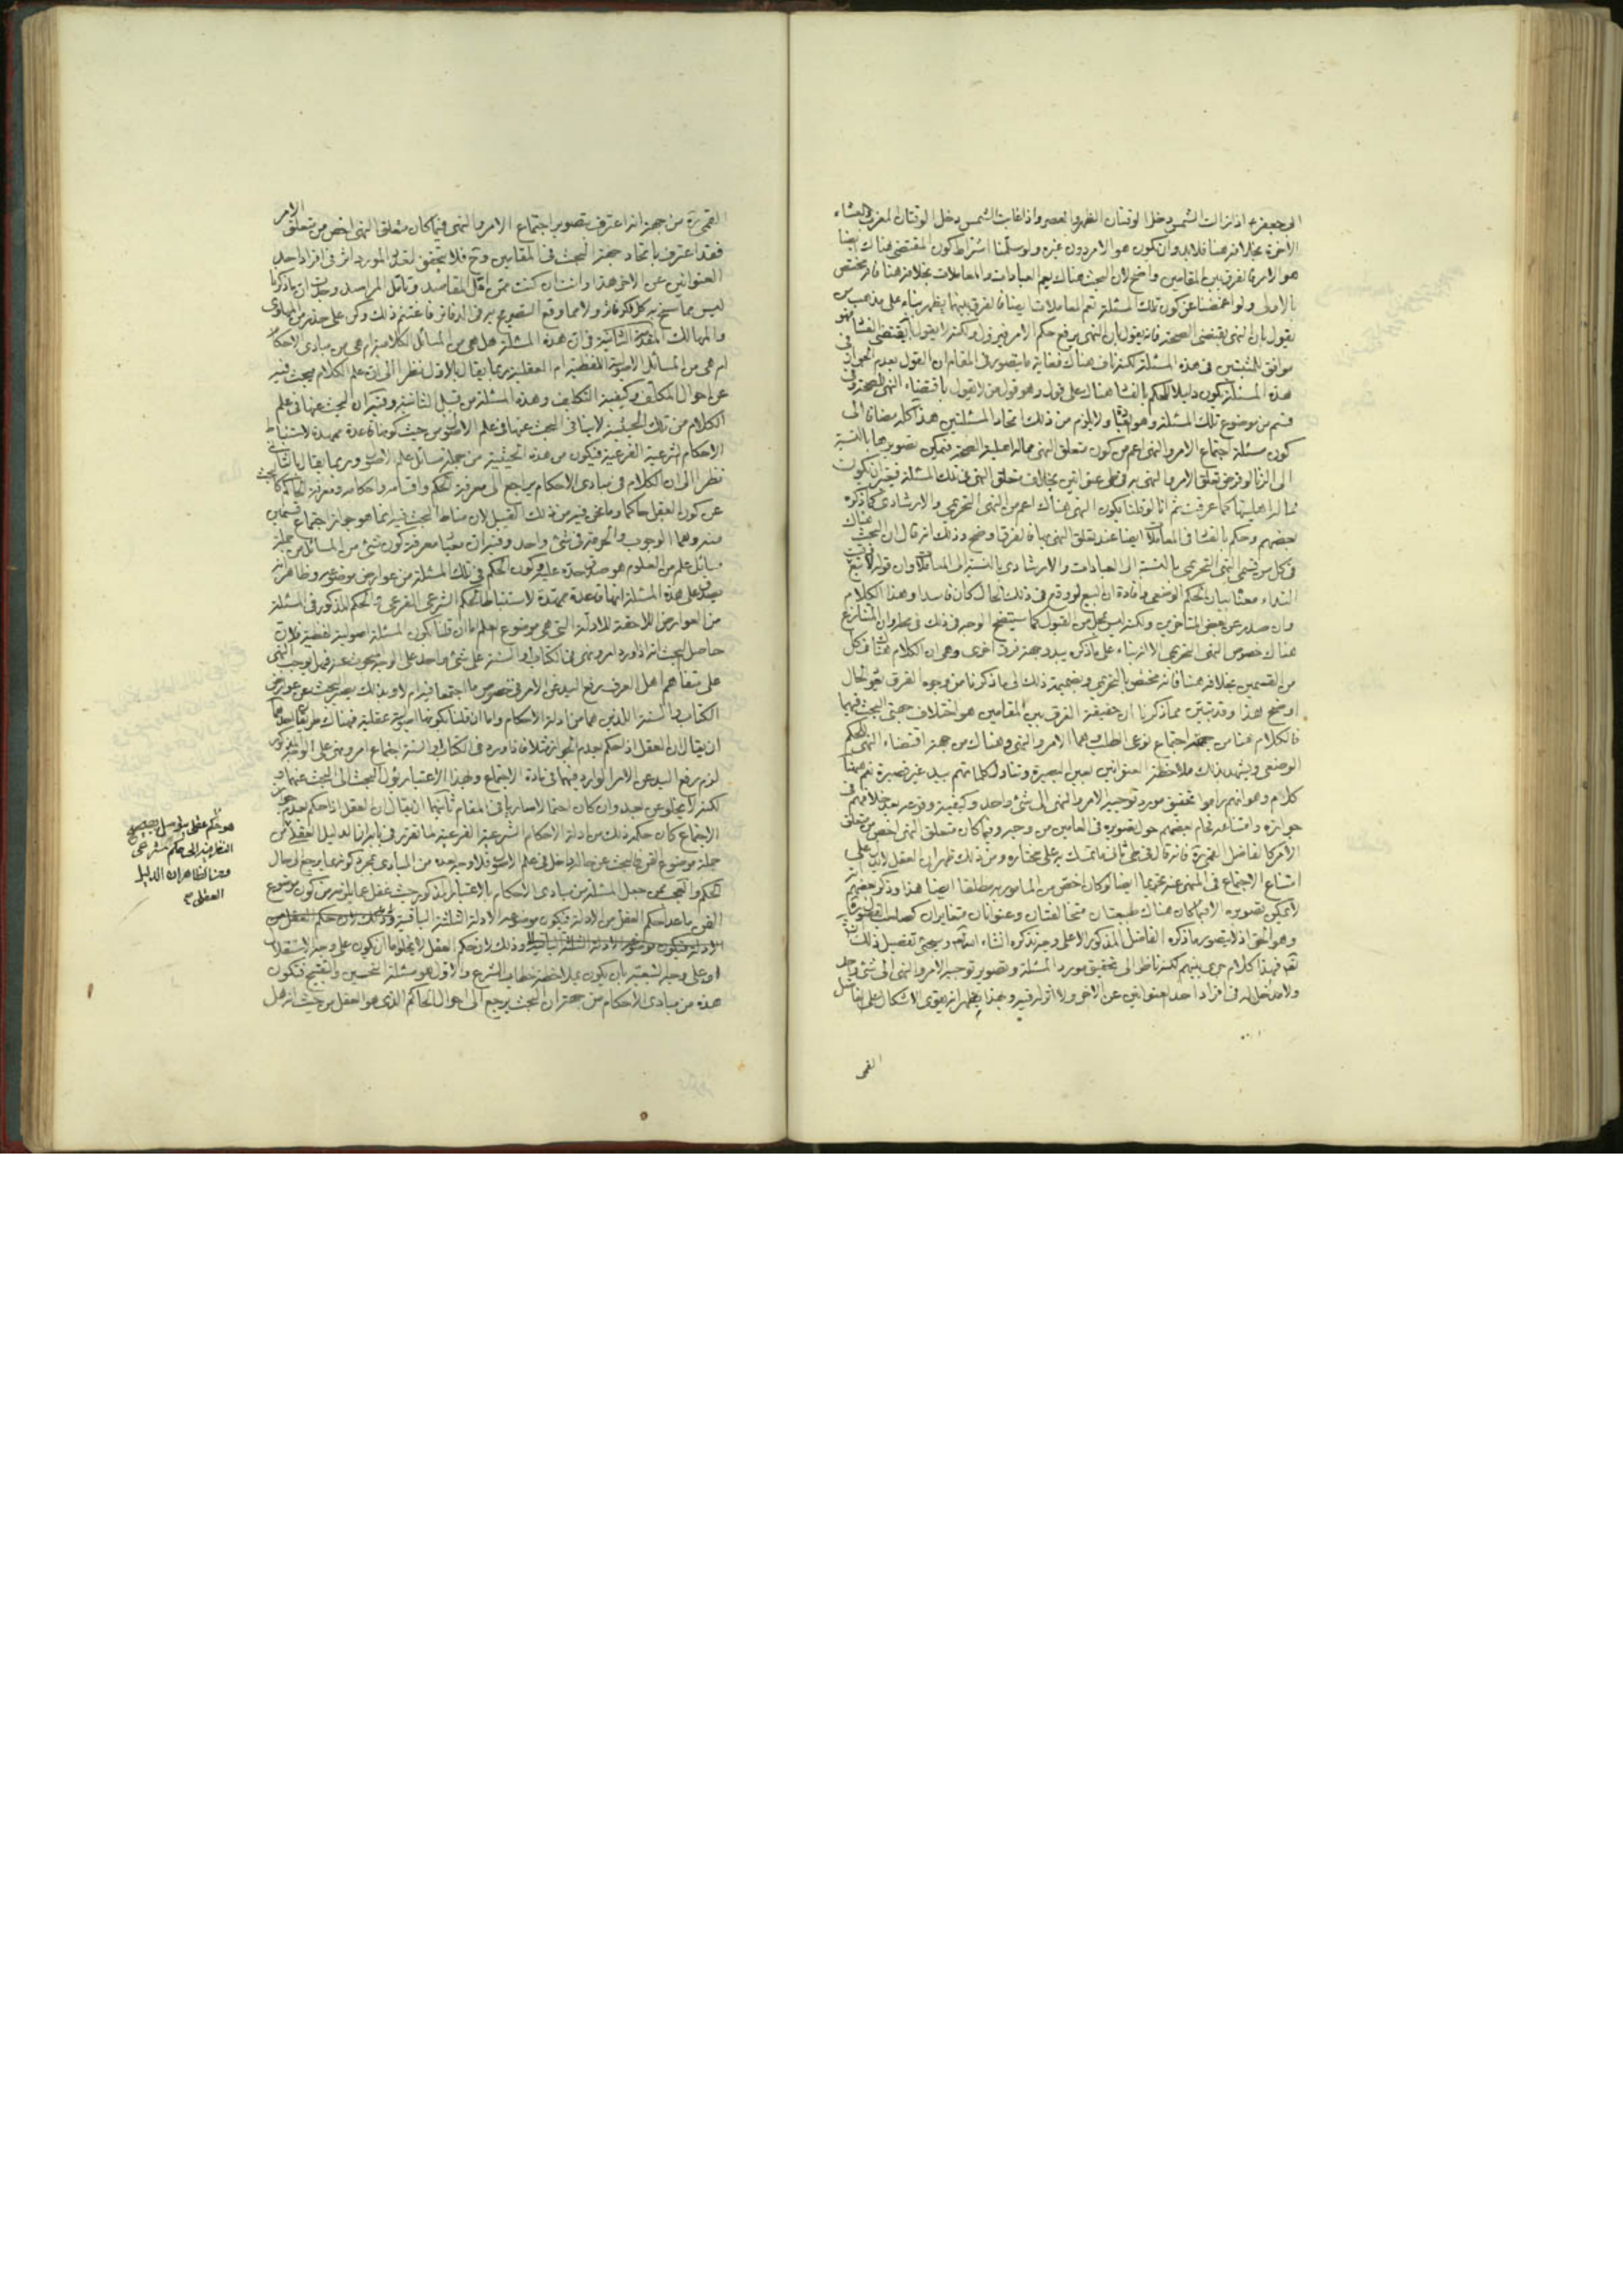 ابى جعفر ع اذا زالت الشمس دخل الوقتان الظهر والعصر واذا غابت الشمس دخل الوقتان المغرب والعشاء
الآخرة بخلافه هنا فلا بد وان يكون هو الامر دون غيره ولو سلمنا اشتراط كون المقتضى هناك ايضا
هو الامر فالفرق بين المقامين واضح لان البحث هناك يعم العبادات والمعاملات بخلافه هنا فانه يختص
بالاولى ولو اغمضنا عن كون تلك المسئلة تعم المعاملات ايضا فالفرق بينهما يظهر بناء على مذهب من
يقول بان النهى يقتضى الصحة فانه يقول بان النهى يرفع حكم الامر فيه ولكنه لا يقول باقتضى الفساد فهو
موافق للمثبتين فى هذه المسئلة لكنه ناف هناك فغاية ما يتصور فى المقام ان القول بعدم الجواز فى
هذه المسئلة يكون دليلا للحكم بالفساد هناك على قول وهو قول من لا يقول باقتضاء النهى الصحة فى
قسم من موضوع تلك المسئلة وهو العبادة ولا يلزم من ذلك اتحاد المسئلتين هذا كله مضافا الى
كون مسئلة اجتماع الامر والنهى اعم من كون متعلق النهى مما له اهلية الصحة فيمكن تصويرها بالنسبة
الى الزنا لو فرض تعلق الامر والنهى به فى طى عنوانين بخلاف متعلق النهى فى تلك المسئلة فيعتبر ان يكون
مما له اهليتها كما عرفت ثم انا لو قلنا بكون النهى هناك اعم من النهى التحريمى والارشادى كما ذكره
بعضهم وحكم بالفساد فى المعاملات ايضا عند تعلق النهى بها فالفرق اوضح وذلك انه قال ان البحث هناك
فى كل من قسمى النهى التحريمى بالنسبة الى العبادات والارشادى بالنسبة الى المعاملات وان قوله لا تبع وقت
النداء معناه بيان الحكم الوضعى وافادة ان البيع لو وقع فى ذلك الحال كان فاسدا وهذا الكلام
وان صدر عن بعض المتأخرين ولكنه ليس بمحل من القبول كما سيتضح الوجه فى ذلك فى محله وان المتنازع
هناك خصوص النهى التحريمى الا انه بناء على ما ذكره يبدو جهة فرق اخرى وهى ان الكلام هناك فى كل
من القسمين بخلافه هنا فانه مختص بالتحريمى وبضميمة ذلك الى ما ذكرنا من وجوه الفرق يغدو الحال
اوضح هذا وقد تبين مما ذكرنا ان حقيقة الفرق بين المقامين هو اختلاف جهتى البحث فيهما
فالكلام هنا من جهة اجتماع نوعى الطلب وهما الامر والنهى وهناك من جهة اقتضاء النهى للحكم
الوضعى ويشهد بذلك ملاحظة العنوانين بعين البصيرة وتناول كلماتهم بيد غير قصيرة نعم هيهنا
كلام وهو انهم راموا تحقيق مورد توجيه الامر والنهى الى شئ واحد وكيفية وقوعه بعد خلافهم فى
جوازه وامتناعه فحام بعضهم حول تصويره فى العامين من وجه وفيما كان متعلق النهى اخص من متعلق
الامر كالفاضل القمى ره فانه قال فى ثانى ما تمسك به على مختاره ومن ذلك ظهر ان العقل لا يدل على
امتناع الاجتماع فى المنهى عنه تحريما ايضا لو كان اخص من المأمور به مطلقا ايضا هذا وذكر بعضهم انه
لا يمكن تصويره الا فيما كان هناك طبيعتان متخالفتان وعنوانان متغايران كصاحب القوانين
وهو الحق اذ لا يتصور ما ذكره الفاضل المذكور الا على وجه نذكره انشاء الله تعالى وسيجئ تفصيل ذلك انشاء
الله فهذا كلام جرى بينهم لكنه ناظر الى تحقيق مورد المسئلة وتصوير توجيه الامر والنهى الى شئ واحد
ولا مدخل له فى افراد احد العنوانين عن الآخر ولا اثر له فيه وبهذا يظهر انه يقوى الاشكال على الفاضل
القمى
القمى ره من جهة انه اعترف بتصوير اجتماع الامر والنهى فيما كان متعلق النهى اخص من متعلق الامر
فقد اعترف باتحاد جهة البحث فى المقامين وح فلا يتحقق لتغاير المورد اثر فى افراد احد
العنوانين عن الآخر هذا وانت ان كنت ممن تعقل المقاصد وتأمل المراصد وجدت ان ما ذكرنا
ليس مما سنح به كل فكر فاتر ولا مما وقع التصريح به فى الدفاتر فاغتنم ذلك وكن على حذر من المهاوى
والمهالك المقدمة الثانية فى ان هذه المسئلة هل هى من المسائل الكلامية ام هى من مبادى الاحكام
ام هى من المسائل الاصولية اللفظية ام العقلية ربما يقال بالاول نظرا الى ان علم الكلام يبحث فيه
عن احوال المكلف وكيفية التكليف وهذه المسئلة من قبيل الثانية وفيه ان البحث عنها فى علم
الكلام من تلك الحيثية لا ينافى البحث عنها فى علم الاصول من حيث كونها قاعدة ممهدة لاستنباط
الاحكام الشرعية الفرعية فيكون من هذه الحيثية من جملة مسائل علم الاصول وربما يقال بالثانى
نظرا الى ان الكلام فى مبادى الاحكام يراجع الى معرفة الحكم واقسامه واحكامه ومعرفة الحاكم كالبحث
عن كون العقل حاكما وما نحن فيه من ذلك القبيل لان مناط البحث فيه انما هو جواز اجتماع قسمين
منه وهما الوجوب والحرمة فى شئ واحد وفيه ان معيار معرفة كون شئ من المسائل من جملة
مسائل علم من العلوم هو صدق حده عليه وكون الحكم فى تلك المسئلة من عوارض موضوعه وظاهر انه
يصدق على هذه المسئلة انها قاعدة ممهدة لاستنباط الحكم الشرعى الفرعى والحكم المذكور فى المسئلة
من العوارض اللاحقة للادلة التى هى موضوع العلم اما ان قلنا بكون المسئلة اصولية لفظية فلان
حاصل البحث انه اذا ورد امر ونهى فى الكتاب والسنة على شئ واحد على الوجه المبحوث عنه فهل يوجب النهى
على متفاهم اهل العرف رفع اليد عن الامر فى خصوص ما اجتمعا فيه ام لا وبذلك يصير البحث عن عوارض
الكتاب والسنة اللذين هما من ادلة الاحكام واما ان قلنا بكونها اصولية عقلية فهناك طريقان احدهما
ان يقال ان العقل اذا حكم بعدم الجواز مثلا فاذا ورد فى الكتاب والسنة اجتماع امر ونهى على الوجه المذكور
لزم رفع اليد عن الامر الوارد فيهما فى مادة الاجتماع وبهذا الاعتبار يؤول البحث الى البحث عنهما
لكنه لا يخلو عن بعد وان كان احتمالا ساريا فى المقام ثانيهما ان يقال ان العقل اذا حكم بعدم جواز
الاجتماع كان حكمه ذلك من ادلة الاحكام الشرعية الفرعية لما تقرر فى بابه ان الدليل العقلى
جملة موضوع الفن فالبحث عن حاله داخل فى علم الاصول فلا وجه لعده من المبادى بمجرد كونه مما يرجع الى حال
الحكم والعجب ممن جعل المسئلة من مبادى الاحكام بالاعتبار المذكور حيث غفل عما يلزمه من كون موضوع
الفن ما عدا حكم العقل من الادلة فيكون موضوعه الادلة الثلثة الباقية وذلك لان حكم العقل من
الادلة فيكون موضوعه الادلة الثلثة الباقية وذلك لان حكم العقل لا يخلو اما ان يكون على وجه الاستقلال
او على وجه التبعية بان يكون بملاحظة خطاب الشرع والاول هو مسئلة التحسين والتقبيح فتكون
هذه من مبادى الاحكام من جهة ان البحث يرجع الى احوال الحاكم الذى هو العقل من حيث انه هل
هو حكم عقلى يتوصل بصحيح
النظر فيه الى حكم شرعى
ومن الظاهر ان الدليل
العقلى من